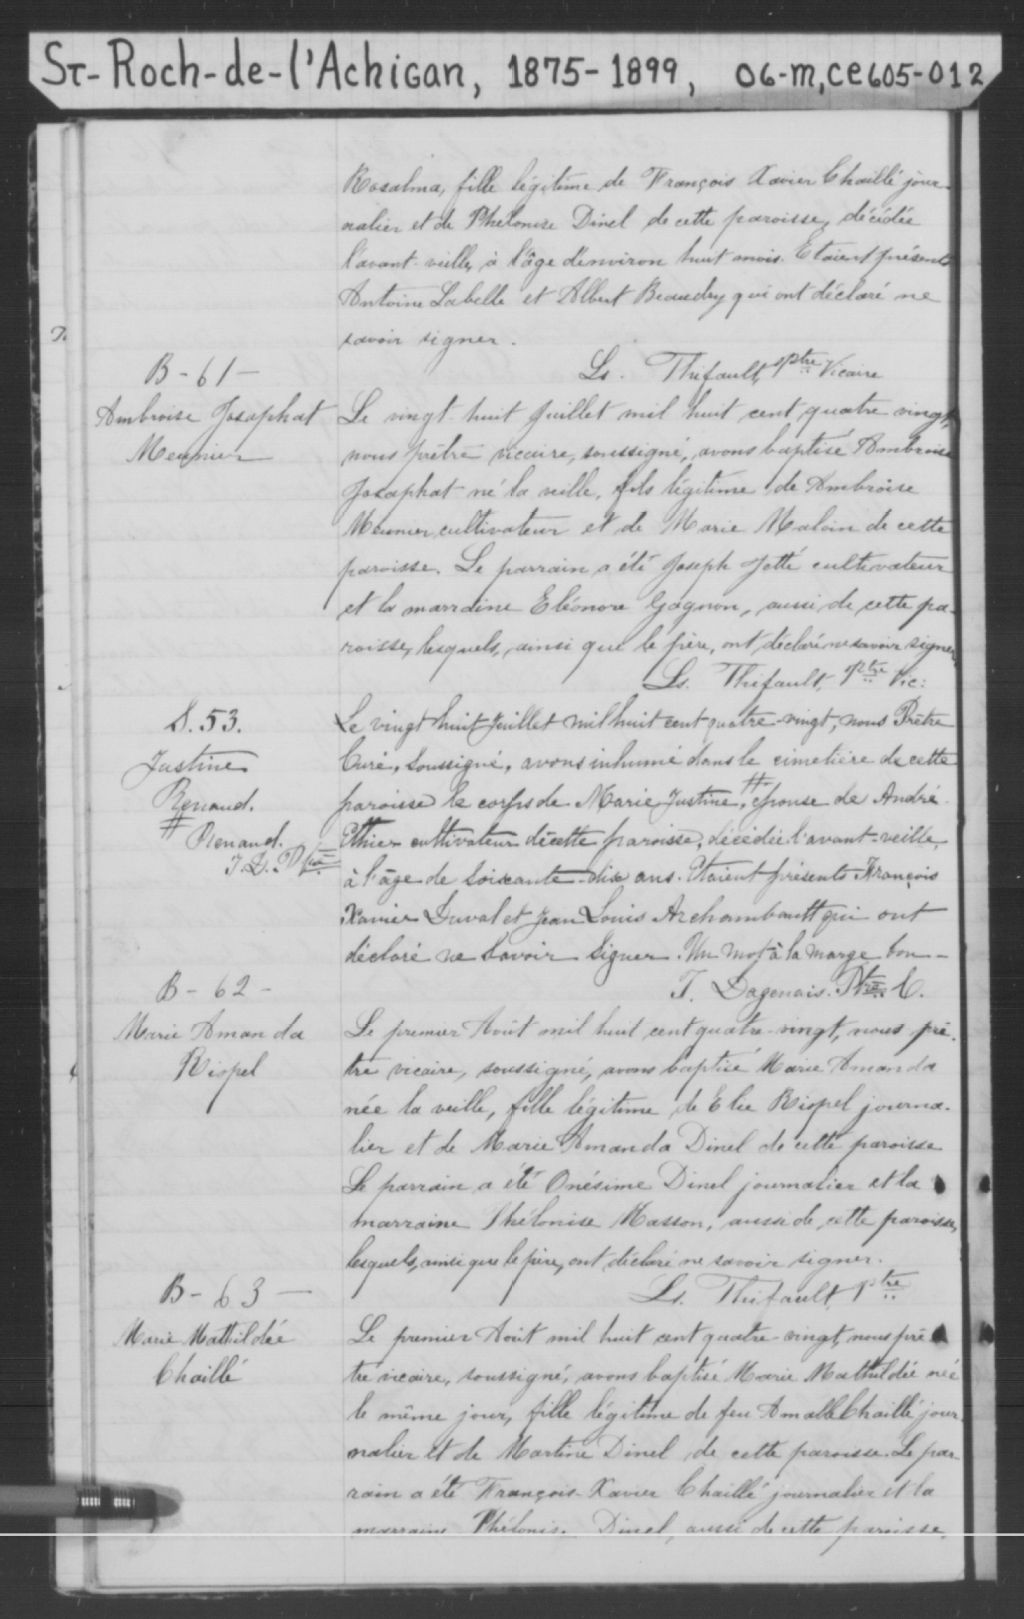 St-Roch-de-l'Achigan, 1875-1899, 06-M, CE605-012
Rosalma, fille légitime de François Xavier Chaillé jour-
nalier et de Phelonise Dinel de cette paroisse, décédée
l'avant-veille, à l'âge d'environ huit mois. Etaient présents
Antoine Labelle et Albert Beaudry qui ont déclaré ne
savoir signer.
Ls. Thifault, Ptre Vicaire
B-61-
Ambroise Josaphat
Meunier
Le vingt-huit Juillet mil huit cent quatre vingt,
nous prêtre vicaire, soussigné, avons baptisé Ambroise
Josaphat né la veille, fils légitime de Ambroise
Meunier, cultivateur et de Marie Maloin de cette
paroisse. Le parrain a été Joseph Jetté cultivateur
et la marraine Eléonore Gagnon, aussi de cette pa-
roisse, lesquels, ainsi que le père, ont déclaré ne savoir signer,
Ls. Thifault, Ptre Vic:
S. 53.
Justine
Renaud.
# Renaud.
T. D. Ptre
Le vingt huit Juillet mil huit cent quatre-vingt, nous Prêtre
Curé, Soussigné, avons inhumé dans le cimetière de cette
paroisse le corps de Marie Justine, # épouse de André
Ethier cultivateur de cette paroisse, décédée l'avant-veille
à l'âge de Soixante-dix ans. Etaient présents François
Xavier Duval et Jean Louis Archambault qui ont
déclaré ne Savoir Signer. Un mot à la marge bon-
T. Dagenais. Ptre C.
B-62-
Marie Amanda
Rispel
Le premier Août mil huit cent quatre-vingt, nous prê-
tre vicaire, soussigné, avons baptisé Marie Amanda
née la veille, fille légitime de Elie Rispel journa-
lier et de Marie Amanda Dinel de cette paroisse
Le parrain a été Onésime Dinel journalier et la
marraine Phélonise Masson, aussi de cette paroisse,
lesquels, ainsi que le père, ont déclaré ne savoir signer.
Ls. Thifault, Ptre
B-63-
Marie Mathildée
Chaillé
Le premier Août mil huit cent quatre-vingt, nous prê-
tre vicaire, soussigné, avons baptisé Marie Mathildée née
le même jour, fille légitime de feu Amable Chaillé jour-
nalier et de Martine Dinel de cette paroisse. Le par-
rain a été François-Xavier Chaillé journalier et la
marraine Phélonise Dinel, aussi de cette paroisse,